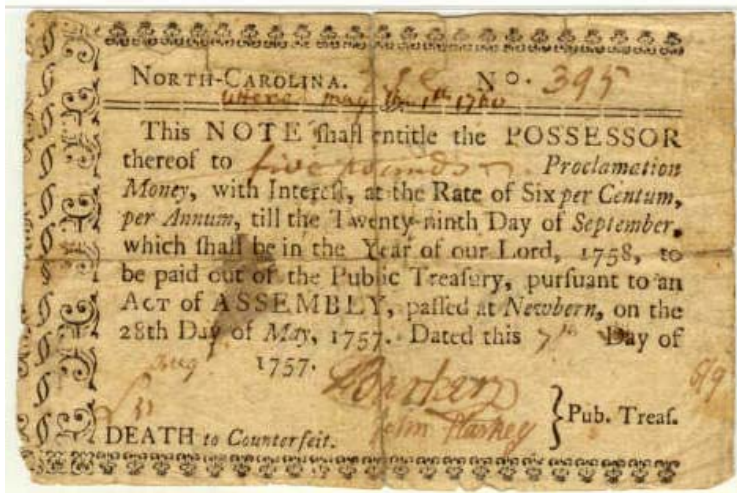 NORTH-CAROLINA. No. 395
uttered may the 1th 1760
This NOTE ſhall entitle the POSSESSOR
thereof to five pounds Proclamation
Money, with Intereſt, at the Rate of Six per Centum,
per Annum, till the Twenty-ninth Day of September,
which ſhall be in the Year of our Lord, 1758, to
be paid out of the Public Treaſury, purſuant to an
ACT of ASSEMBLY, paſſed at Newbern, on the
28th Day of May, 1757. Dated this 7th Day of
Aug 1757.
Barker
John Starkey } Pub. Treaſ.
DEATH to Counterfeit.